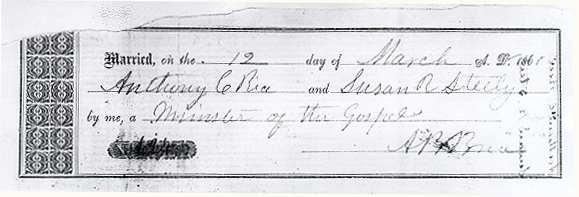 Married, on the 12 day of March A. D. 1861
Anthony C Rice and Susan R Steely
by me, a Minister of the Gospel